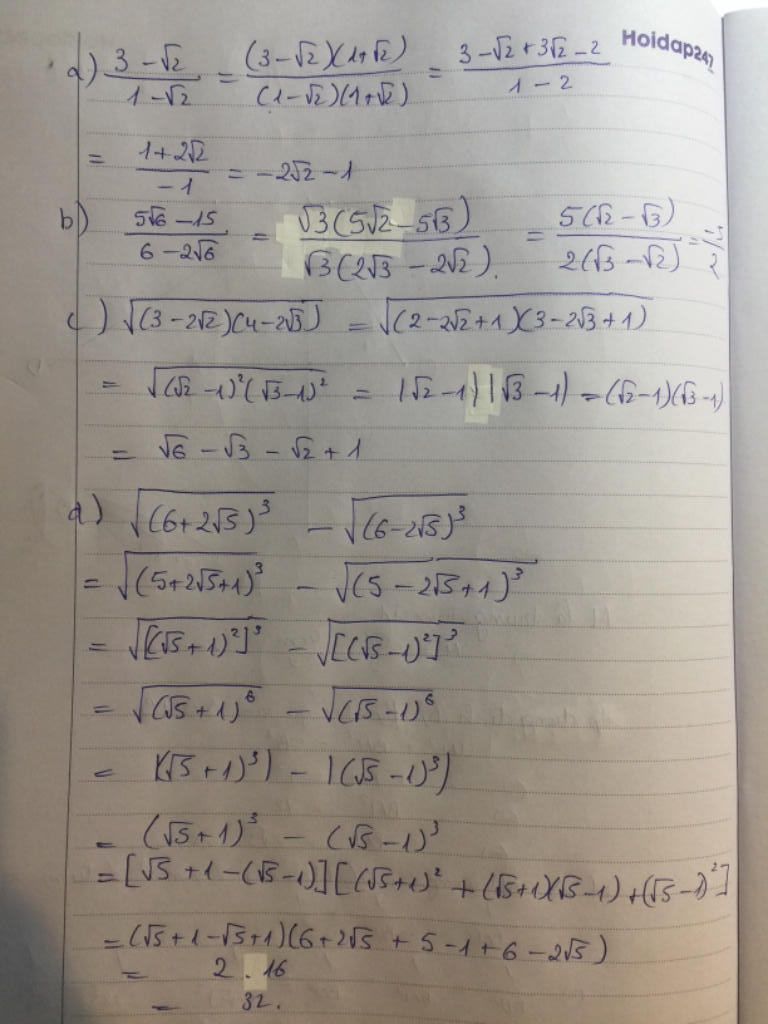 Hoidap247
a) (3 - √2)/(1 - √2) = ((3 - √2)(1 + √2))/((1 - √2)(1 + √2)) = (3 - √2 + 3√2 - 2)/(1 - 2)
= (1 + 2√2)/(-1) = -2√2 - 1
b) (5√6 - 15)/(6 - 2√6) = (√3(5√2 - 5√3))/(√3(2√3 - 2√2)) = (5(√2 - √3))/(2(√3 - √2)) = -5/2
c) √((3 - 2√2)(4 - 2√3)) = √((2 - 2√2 + 1)(3 - 2√3 + 1))
= √((√2 - 1)²(√3 - 1)²) = |√2 - 1||√3 - 1| = (√2 - 1)(√3 - 1)
= √6 - √3 - √2 + 1
d) √((6 + 2√5)³) - √((6 - 2√5)³)
= √((5 + 2√5 + 1)³) - √((5 - 2√5 + 1)³)
= √([(√5 + 1)²]³) - √([(√5 - 1)²]³)
= √((√5 + 1)⁶) - √((√5 - 1)⁶)
= |(√5 + 1)³| - |(√5 - 1)³|
= (√5 + 1)³ - (√5 - 1)³
= [√5 + 1 - (√5 - 1)][(√5 + 1)² + (√5 + 1)(√5 - 1) + (√5 - 1)²]
= (√5 + 1 - √5 + 1)(6 + 2√5 + 5 - 1 + 6 - 2√5)
= 2 . 16
= 32.